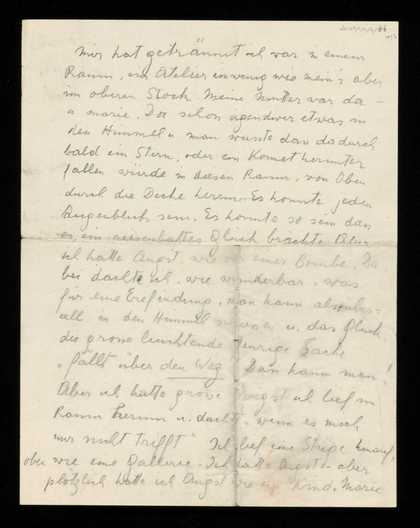 mir hat geträumt ich war in einem
Raum, ein Atelier ein wenig wie mein's aber
im oberen Stock. Meine Mutter war da –
u. Marie. Da schoss irgendwer etwas in
den Himmel u. man wusste dass dadurch
bald ein Stern, oder ein Komet herunter
fallen würde in diesen Raum, von Oben
durch die Decke herein. Es konnte jeden
Augenblick sein. Es konnte so sein dass
es ein riesenhaftes Glück brachte. Aber
ich hatte Angst, wie vor einer Bombe. Da
bei dachte ich, wie wunderbar, was
für eine Erfindung, man kann also
all in den Himmel u. das Glück,
die grosse leuchtende feurige Sache
„fällt über den Weg". Dann kann man!
Aber ich hatte grosse Angst ich lief im
Raum herum u. dachte wenn es mich
nur nicht trifft" Ich lief eine Stiege hinauf,
oben wie eine Gallerie. Ich hatte Angst – aber
plötzlich hatte ich Angst wie ein Kind. Marie